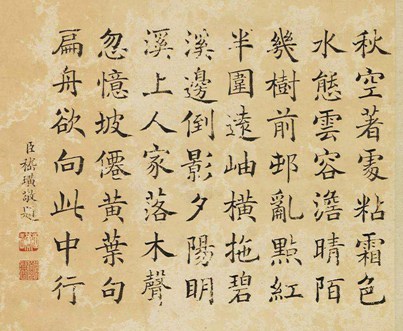 秋空著處粘霜色
水態雲容澹晴陌
幾樹前邨亂點紅
半圍遠岫橫拖碧
溪邊倒影夕陽明
溪上人家落木聲
忽憶坡僊黃葉句
扁舟欲向此中行
臣嵇璜敬題